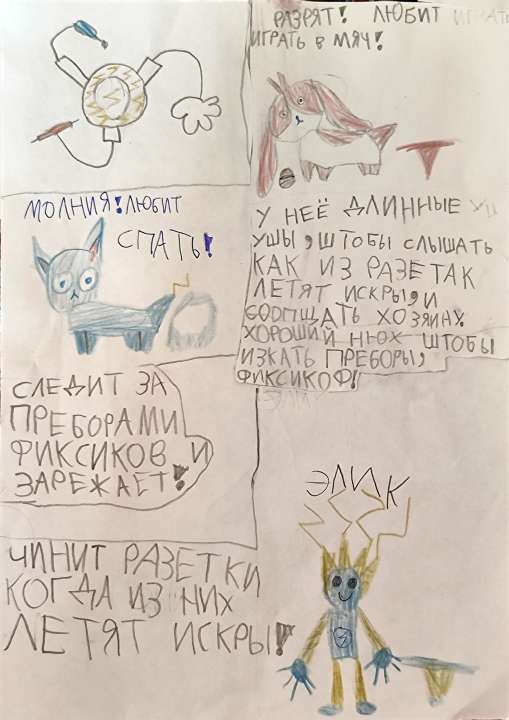 РАЗРЯТ! ЛЮБИТ ИГРАТЬ
ИГРАТЬ В МЯЧ!
МОЛНИЯ! ЛЮБИТ
СПАТЬ!
У НЕЁ ДЛИННЫЕ УШ
УШЫ, ШТОБЫ СЛЫШАТЬ
КАК ИЗ РАЗЕТАК
ЛЕТЯТ ИСКРЫ, И
СООПЩАТЬ ХОЗЯИНУ.
ХОРОШИЙ НЮХ ШТОБЫ
ИЗКАТЬ ПРЕБОРЫ,
ФИКСИКОФ!
СЛЕДИТ ЗА
ПРЕБОРАМИ
ФИКСИКОВ И
ЗАРЕЖАЕТ!
ЭЛИК
ЧИНИТ РАЗЕТКИ
КОГДА ИЗ НИХ
ЛЕТЯТ ИСКРЫ!